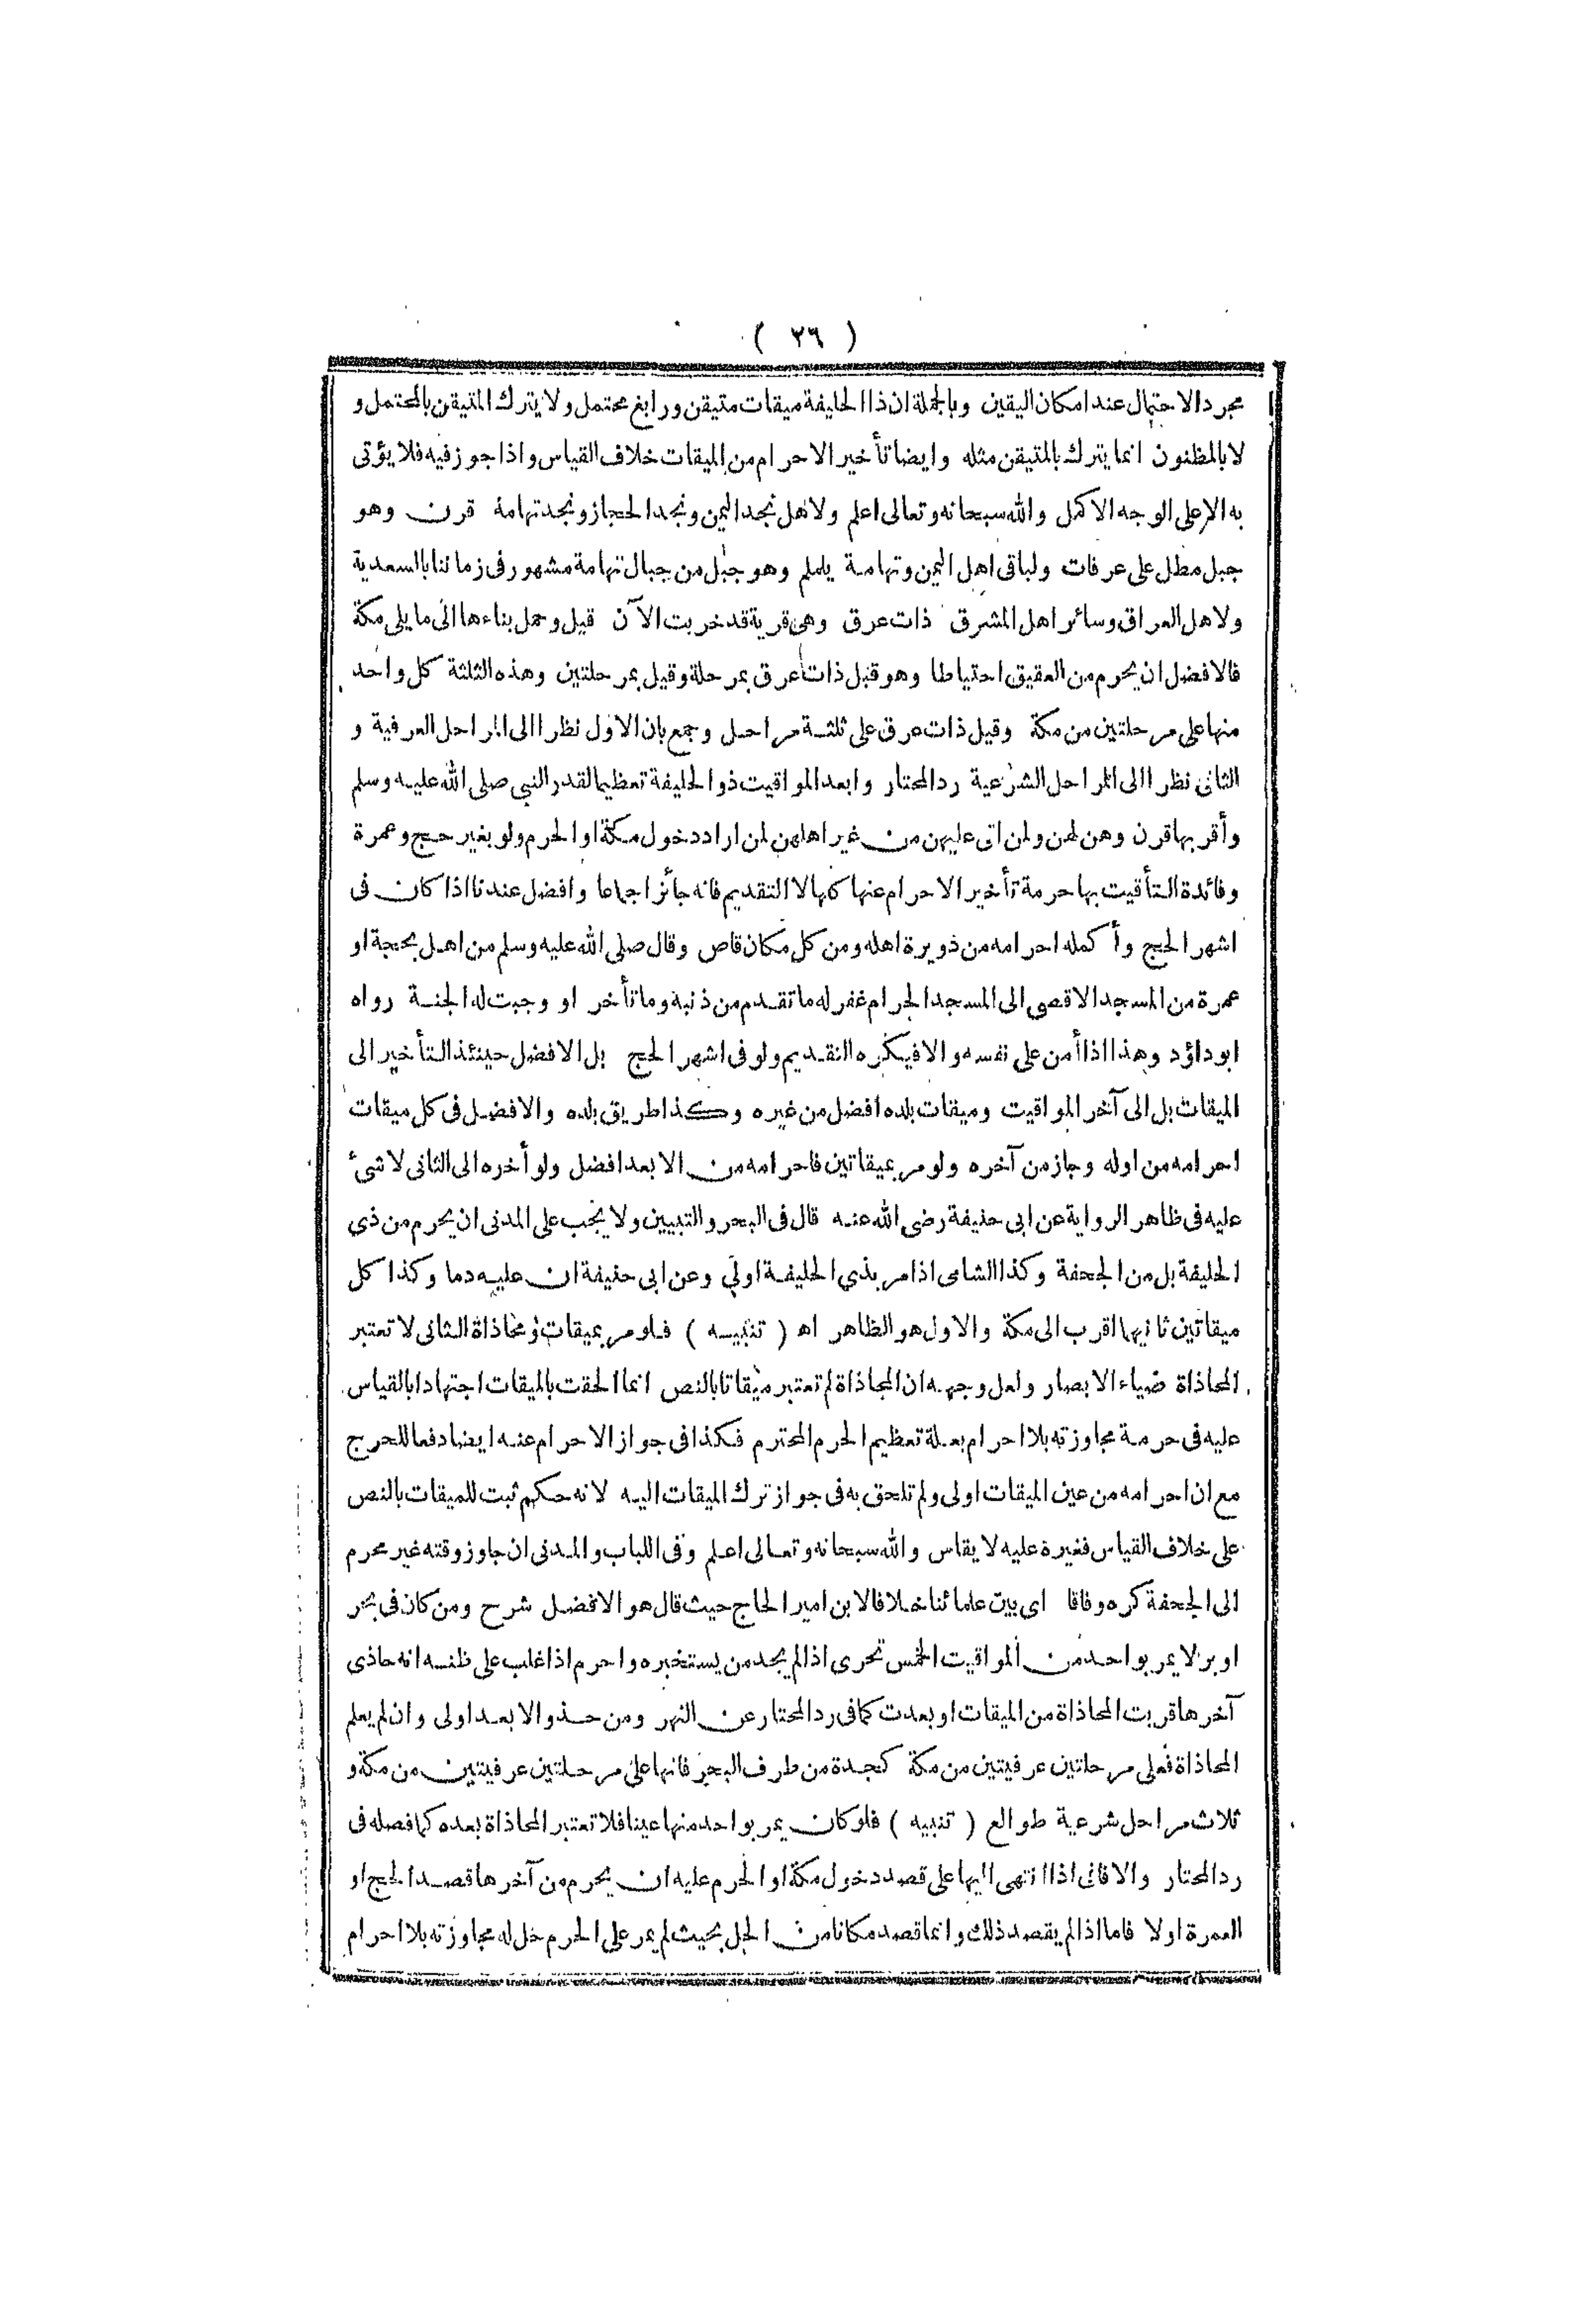 ( ٣٦ )
مجرد الاحتمال عند امكان اليقين وبالجملة ان ذا الحليفة ميقات متيقن ورابغ محتمل ولا يترك المتيقن بالمحتمل و
لا بالمظنون انما يترك بالمتيقن مثله وايضا تأخير الاحرام من الميقات خلاف القياس واذا جوز فيه فلا يؤتى
به الا على الوجه الاكمل والله سبحانه وتعالى اعلم ولاهل نجد اليمن ونجد الحجاز ونجد تهامة قرن وهو
جبل مطل على عرفات ولباقى اهل اليمن وتهامة يلملم وهو جبل من جبال تهامة مشهور فى زماننا بالسعدية
ولاهل العراق وسائر اهل المشرق ذات عرق وهى قرية قد خربت الآن قيل وحمل بناءها الى ما يلى مكة
فالافضل ان يحرم من العقيق احتياطا وهو قبل ذات عرق بمرحلة وقيل بمرحلتين وهذه الثلثة كل واحد
منها على مرحلتين من مكة وقيل ذات عرق على ثلثة مراحل وجمع بان الاول نظرا الى المراحل العرفية و
الثانى نظرا الى المراحل الشرعية رد المحتار وابعد المواقيت ذو الحليفة تعظيما لقدر النبي صلى الله عليه وسلم
وأقربها قرن وهن لهن ولمن اتى عليهن من غير اهلهن لمن اراد دخول مكة او الحرم ولو بغير حج وعمرة
وفائدة التأقيت بها حرمة تأخير الاحرام عنها كلها لا التقديم فانه جائز اجماعا وافضل عندنا اذا كان فى
اشهر الحج وأكمله احرامه من ذويرة اهله ومن كل مكان قاص وقال صلى الله عليه وسلم من اهل بحجة او
عمرة من المسجد الاقصى الى المسجد الحرام غفر له ما تقدم من ذنبه وما تأخر او وجبت له الجنة رواه
ابو داؤد وهذا اذا أمن على نفسه والا فيكره التقديم ولو فى اشهر الحج بل الافضل حينئذ التأخير الى
الميقات بل الى آخر المواقيت وميقات بلده افضل من غيره وكذا طريق بلده والافضل فى كل ميقات
احرامه من اوله وجاز من آخره ولو مر بميقاتين فاحرامه من الابعد افضل ولو أخره الى الثانى لا شئ
عليه فى ظاهر الرواية عن ابى حنيفة رضى الله عنه قال فى البحر والتبيين ولا يجب على المدنى ان يحرم من ذي
الحليفة بل من الجحفة وكذا الشامى اذا مر بذي الحليفة اولى وعن ابى حنيفة ان عليه دما وكذا كل
ميقاتين ثانيهما اقرب الى مكة والاول هو الظاهر اه ( تنبيه ) فلو مر بميقات ومحاذاة الثانى لا تعتبر
المحاذاة ضياء الابصار ولعل وجهه ان المحاذاة لم تعتبر ميقاتا بالنص انما الحقت بالميقات اجتهادا بالقياس
عليه فى حرمة مجاوزته بلا احرام بعلة تعظيم الحرم المحترم فكذا فى جواز الاحرام عنه ايضا دفعا للحرج
مع ان احرامه من عين الميقات اولى ولم تلحق به فى جواز ترك الميقات اليه لانه حكم ثبت للميقات بالنص
على خلاف القياس فغيره عليه لا يقاس والله سبحانه وتعالى اعلم وفى اللباب والمدنى ان جاوز وقته غير محرم
الى الجحفة كره وفاقا اى بين علمائنا خلافا لابن امير الحاج حيث قال هو الافضل شرح ومن كان فى بحر
او بر لا يمر بواحد من المواقيت الخمس تحرى اذا لم يجد من يستخبره واحرم اذا غلب على ظنه انه حاذى
آخرها قربت المحاذاة من الميقات او بعدت كما فى رد المحتار عن النهر ومن حذو الابعد اولى وان لم يعلم
المحاذاة فعلى مرحلتين عرفيتين من مكة كجدة من طرف البحر فانها على مرحلتين عرفيتين من مكة و
ثلاث مراحل شرعية طوالع ( تنبيه ) فلو كان يمر بواحد منها عينا فلا تعتبر المحاذاة بعده كما فصله فى
رد المحتار والافاقى اذا انتهى اليها على قصد دخول مكة او الحرم عليه ان يحرم من آخرها قصد الحج او
العمرة اولا فاما اذا لم يقصد ذلك وانما قصد مكانا من الحل بحيث لم يمر على الحرم حل له مجاوزته بلا احرام